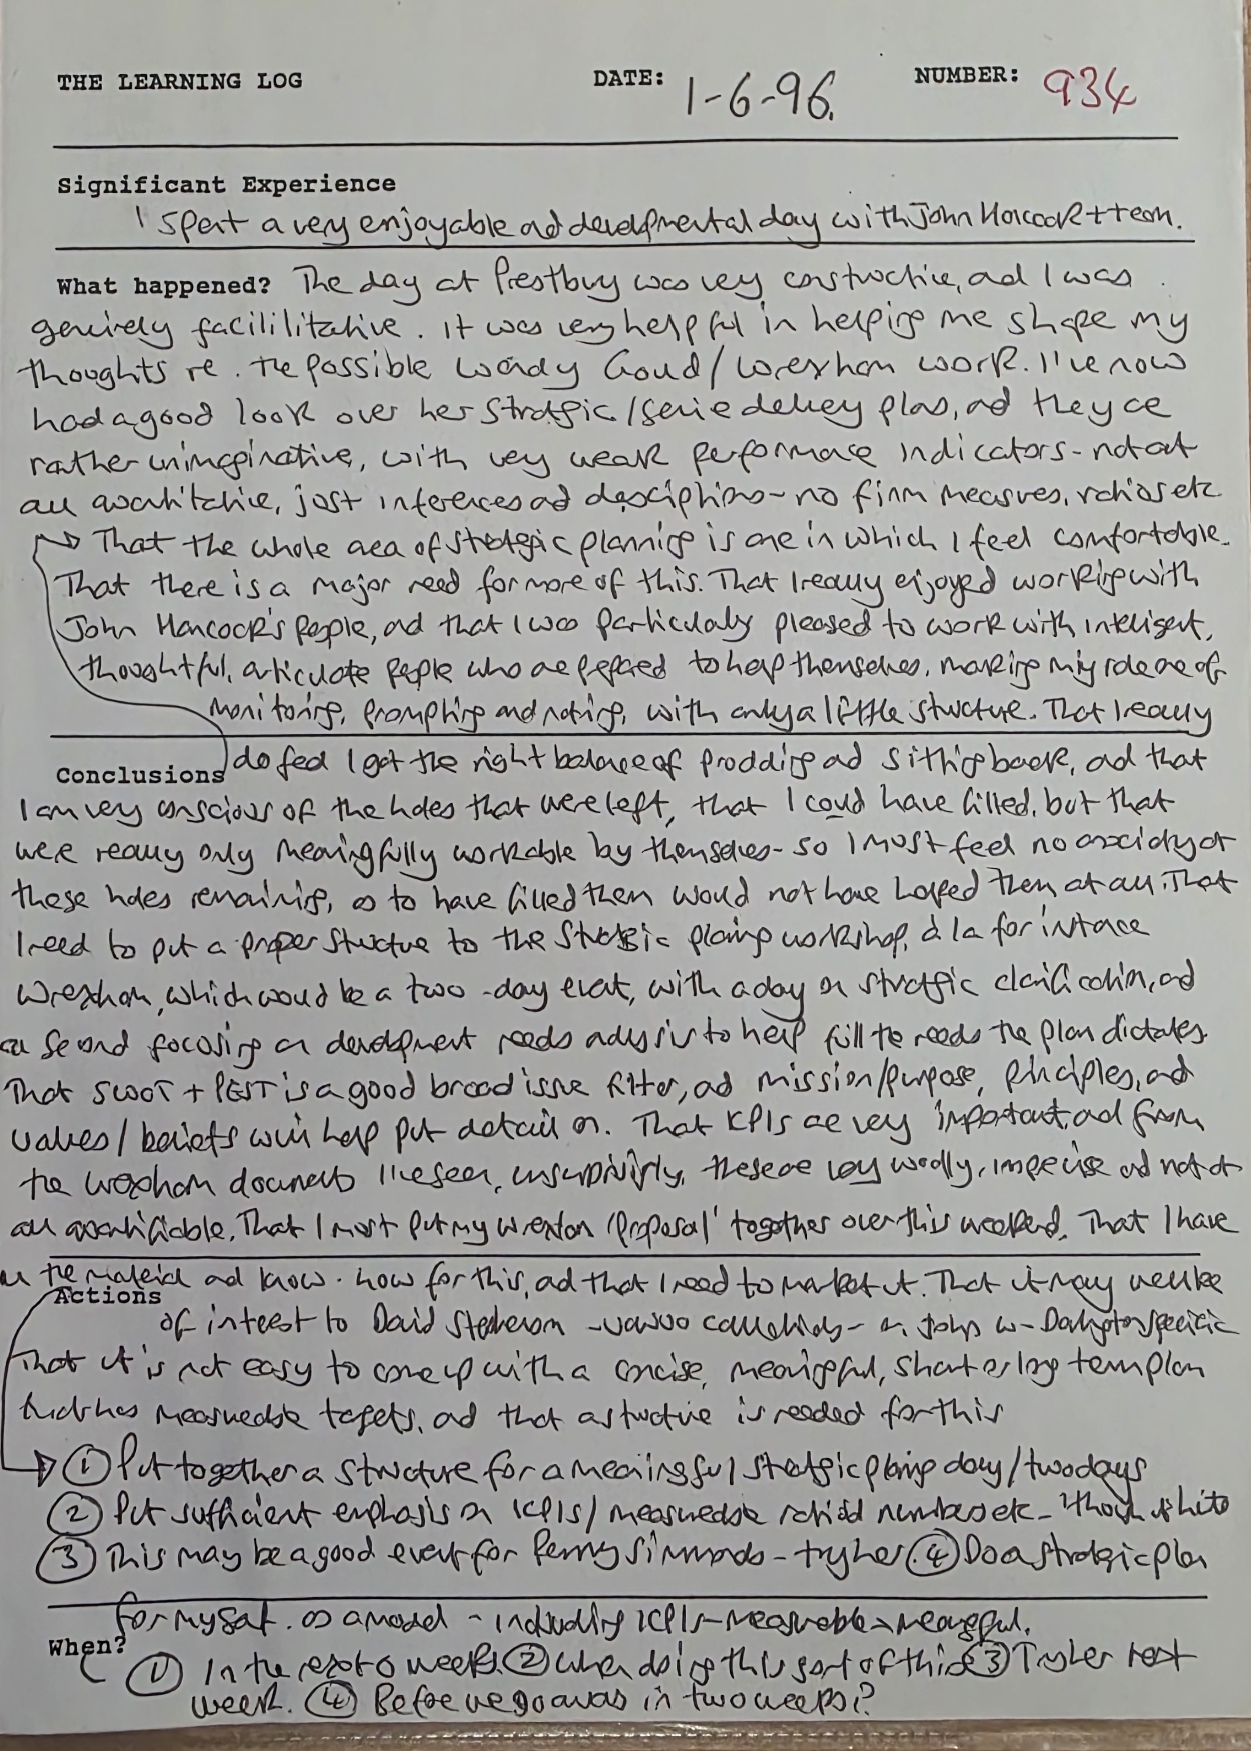 THE LEARNING LOG DATE: 1-6-96. NUMBER: 934
Significant Experience
I spent a very enjoyable and developmental day with John Hancock + team.
What happened? The day at Prestbury was very constructive, and I was
genuinely facililitative. It was very helpful in helping me shape my
thoughts re. the possible Wendy Goud/Wrexham work. I've now
had a good look over her strategic/service delivery plans, and they are
rather unimaginative, with very weak performance indicators - not at
all quantitative, just inferences and descriptions - no firm measures, ratios etc
That the whole area of strategic planning is one in which I feel comfortable.
That there is a major need for more of this. That I really enjoyed working with
John Hancock's people, and that I was particularly pleased to work with intelligent,
thoughtful, articulate people who are prepared to help themselves, making my role one of
monitoring, prompting and noting, with only a little structure. That I really
Conclusions do feel I got the right balance of prodding and sitting back, and that
I am very conscious of the holes that were left, that I could have filled, but that
were really only meaningfully workable by themselves - so I must feel no anxiety at
these holes remaining, as to have filled them would not have helped them at all. That
I need to put a proper structure to the strategic planning workshop, à la for instance
Wrexham, which would be a two-day event, with a day on strategic clarification, and
a second focusing on development needs analysis to help fill the needs the plan dictates.
That SWOT + PEST is a good broad issue filter, and mission/purpose, principles, and
values/beliefs will help put detail on. That KPIs are very important, and from
the Wrexham documents I've seen, unsurprisingly, these are very woolly, imprecise and not at
all quantifiable. That I must put my Wrexham 'proposal' together over this weekend. That I have
all the material and know-how for this, and that I need to market it. That it may well be
Actions of interest to David Stephenson - - on John's w-
That it is not easy to come up with a concise, meaningful, short or long term plan
that has measurable targets, and that a structure is needed for this
① Put together a structure for a meaningful strategic planning day/two days
② Put sufficient emphasis on KPIs/measurable ratios and numbers etc -
③ This may be a good event for Penny Simmonds - try her. ④ Do a strategic plan
for myself. as a model - including KPIs - measurable + meaningful.
When?
① In the next 6 weeks. ② When doing this sort of thing ③ Try her next
week. ④ Before we go away in two weeks?